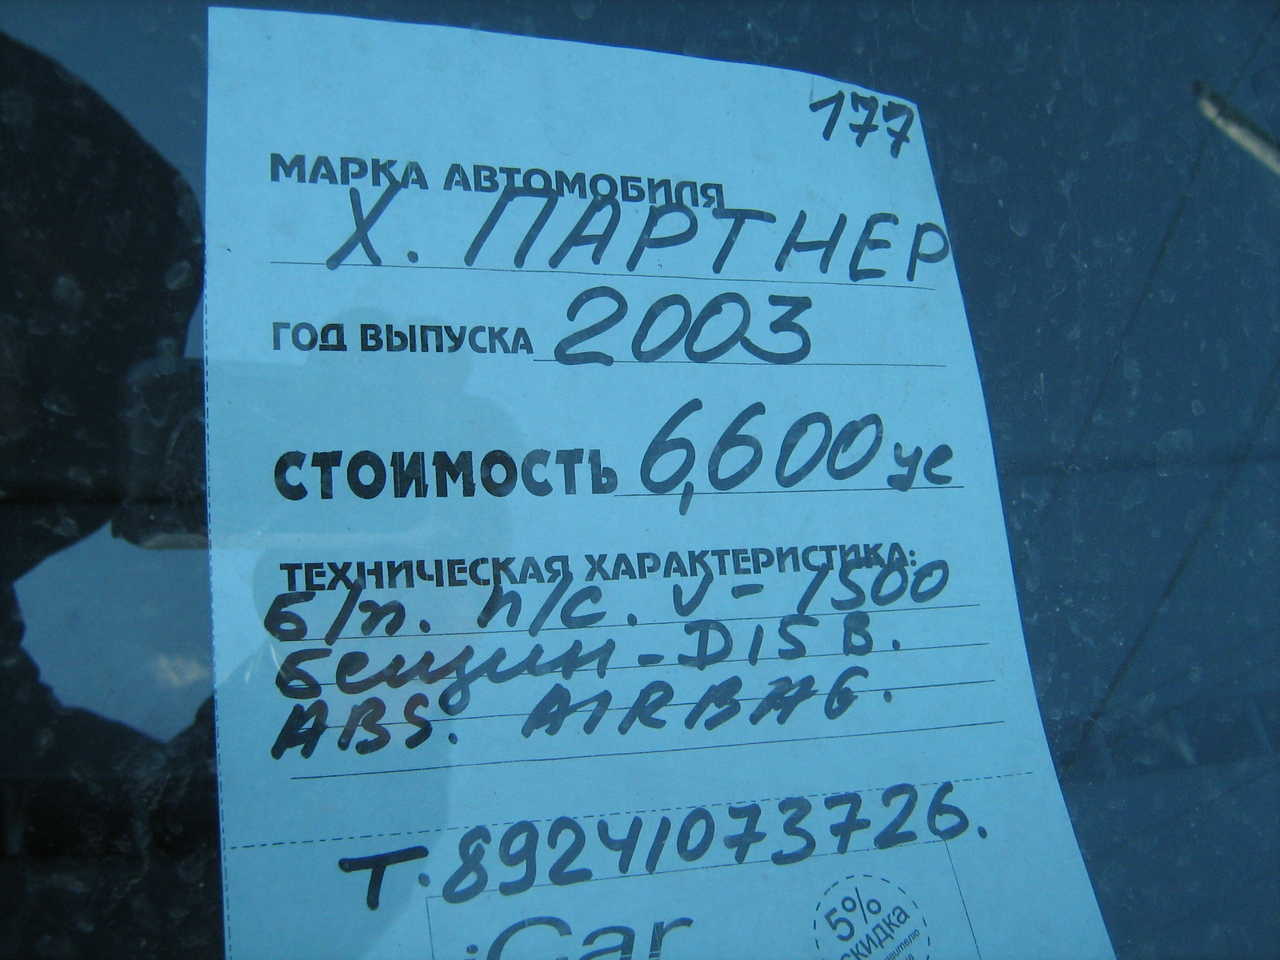 177
МАРКА АВТОМОБИЛЯ
Х. ПАРТНЕР
ГОД ВЫПУСКА 2003
СТОИМОСТЬ 6,600 уе
ТЕХНИЧЕСКАЯ ХАРАКТЕРИСТИКА:
б/п. п/с. V-1500
бензин-DIS В.
ABS. AIRBAG.
Т. 89241073726.
iCar
5%
скидка